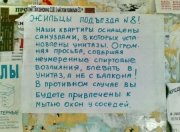 ЖИЛЬЦЫ ПОДЪЕЗДА №8!
НАШИ КВАРТИРЫ ОСНАЩЕНЫ
САНУЗЛАМИ, В КОТОРЫХ УСТА-
НОВЛЕНЫ УНИТАЗЫ. ОГРОМ-
НАЯ ПРОСЬБА, СОВЕРШАЯ
НЕУМЕРЕННЫЕ СПИРТОВЫЕ
ВОЗЛИЯНИЯ, БЛЕВАТЬ В
УНИТАЗ, А НЕ С БАЛКОНА!
В ПРОТИВНОМ СЛУЧАЕ ВЫ
БУДЕТЕ ПРИВЛЕЧЕНЫ К
МЫТЬЮ ОКОН У СОСЕДЕЙ.